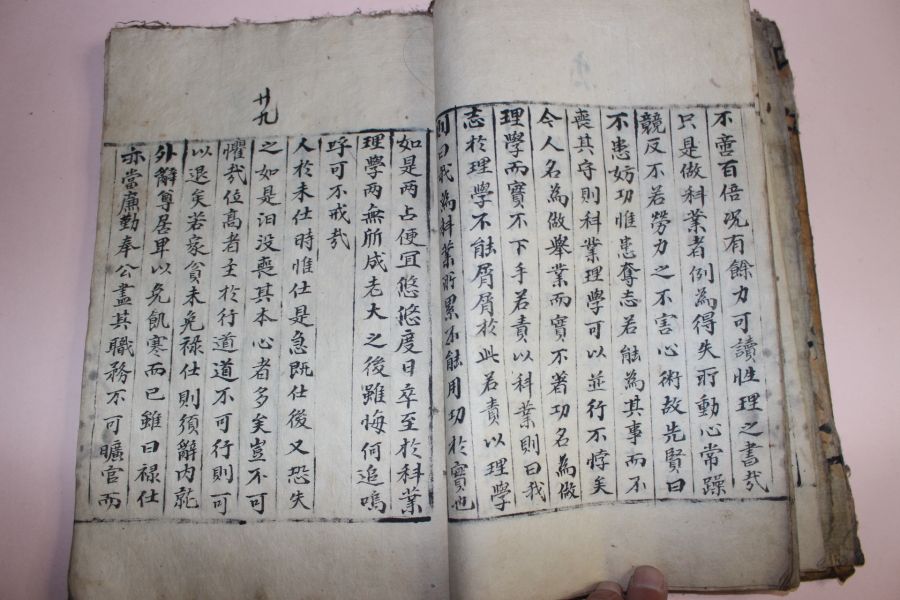 不啻百倍況有餘力可讀性理之書㢤
只是做科業者例為得失所動心常躁
競反不若勞力之不害心術故先賢曰
不患妨功惟患奪志若能為其事而不
喪其守則科業理學可以並行不悖矣
今人名為做舉業而實不著功名為做
理學而實不下手若責以科業則曰我
志於理學不能屑屑於此若責以理學
則曰我為科業所累不能用功於實也
廿九
如是两占便冝悠悠度日卒至於科業
理學两無所成老大之後雖悔何追嗚
呼可不戒㢤
人於未仕時惟仕是急既仕後又恐失
之如是汨没喪其本心者多矣豈不可
懼㢤位高者主於行道道不可行則可
以退矣若家貧未免禄仕則須辭内就
外辭尊居卑以免飢寒而已雖曰禄仕
亦當廉勤奉公盡其職務不可曠官而